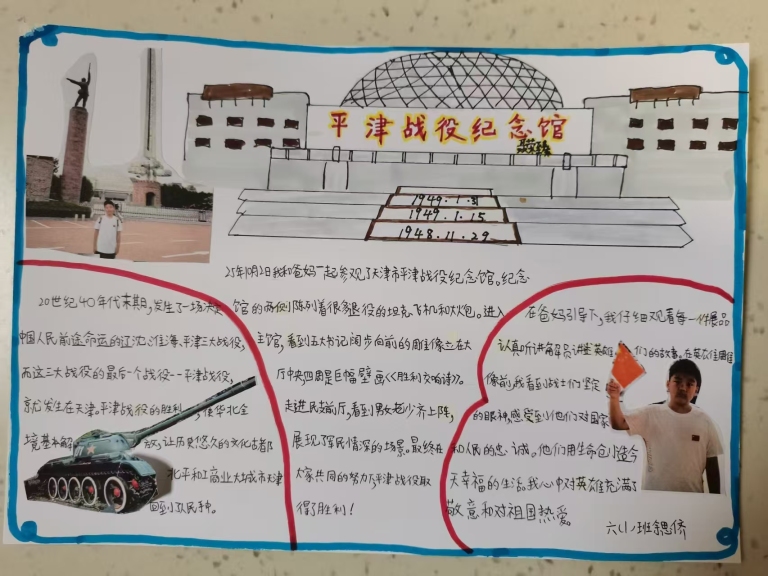 平津战役纪念馆
1949.1.31
1949.1.15
1948.11.29
25年10月2日我和爸妈一起参观了天津市平津战役纪念馆。纪念
馆的两侧陈列着很多退役的坦克、飞机和大炮。进入
主馆,看到五书记阔步向前的铜像立在大
厅中央,四周是巨幅壁画《胜利交响诗》。
走进民支前厅,看到男女老少齐上阵,
展现了军民情深的场景。最终在
大家共同的努力下,平津战役取
得了胜利!
20世纪40年代末期,发生了一场决定
中国人民前途命运的辽沈、淮海、平津三大战役,
而这三大战役的最后个战役--平津战役,
就发生在天津。平津战役的胜利,使华北全
境基本解放,让历史悠久的文化古都
北平和工商业大城市天津
回到了人民手中。
在爸妈引导下,我仔细观看每一件展品
认真听讲解员讲述英雄们的故事。在英雄雕
像前,我看到战士们坚定
的眼神,感受到他们对国家
和人民的忠诚。他们用生命创造今
天幸福的生活。我心中对英雄充满了
敬意和对祖国热爱。
六(1)班